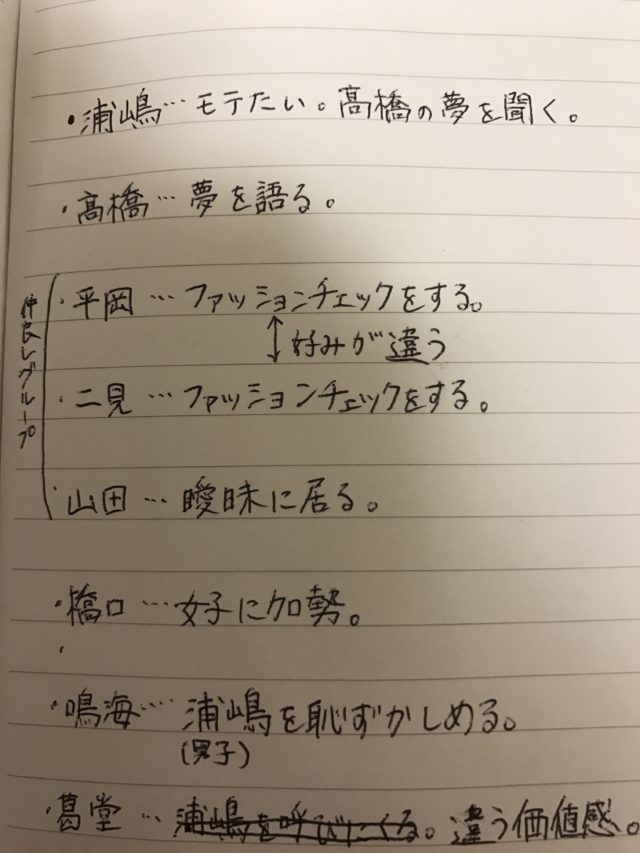 ・浦嶋…モテたい。髙橋の夢を聞く。
・髙橋…夢を語る。
仲良しグループ
・平岡…ファッションチェックをする。
↕好みが違う
・二見…ファッションチェックをする。
・山田…曖昧に居る。
・橋口…女子に加勢。
・
・鳴海…浦嶋を恥ずかしめる。
(男子)
・葛堂…浦嶋を呼びにくる。違う価値感。